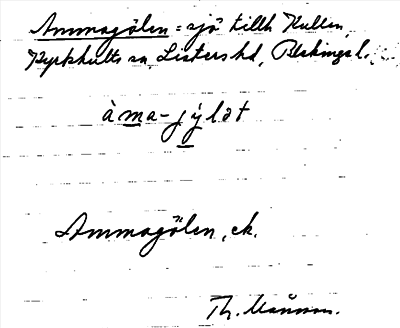 Ammagölen = sjö tillh Kullen,
Kyrkhults sn, Listers hd, Blekinge l.
àma-jýlət
Ammagölen, ek.
Th. Månsson.